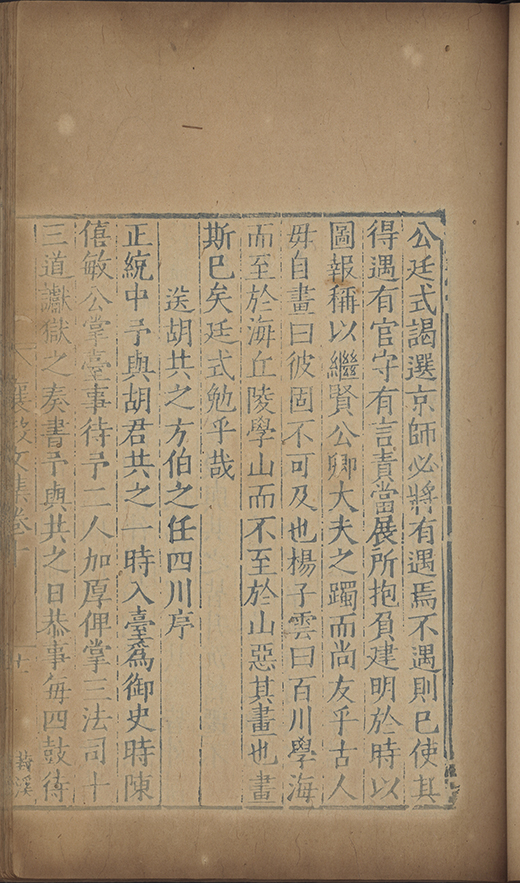 公廷式謁選京師必將有遇焉不遇則已使其
得遇有官守有言責當展所抱負建明於時以
圖報稱以繼賢公卿大夫之躅而尚友乎古人
毋自畫曰彼固不可及也楊子雲曰百川學海
而至於海丘陵學山而不至於山惡其畫也畫
斯已矣廷式勉乎哉
送胡共之方伯之任四川序
正統中予與胡君共之一時入臺爲御史時陳
僖敏公掌臺事待予二人加厚俾掌三法司十
三道讞獄之奏書予與共之日恭事每四鼓待
襄毅文集卷